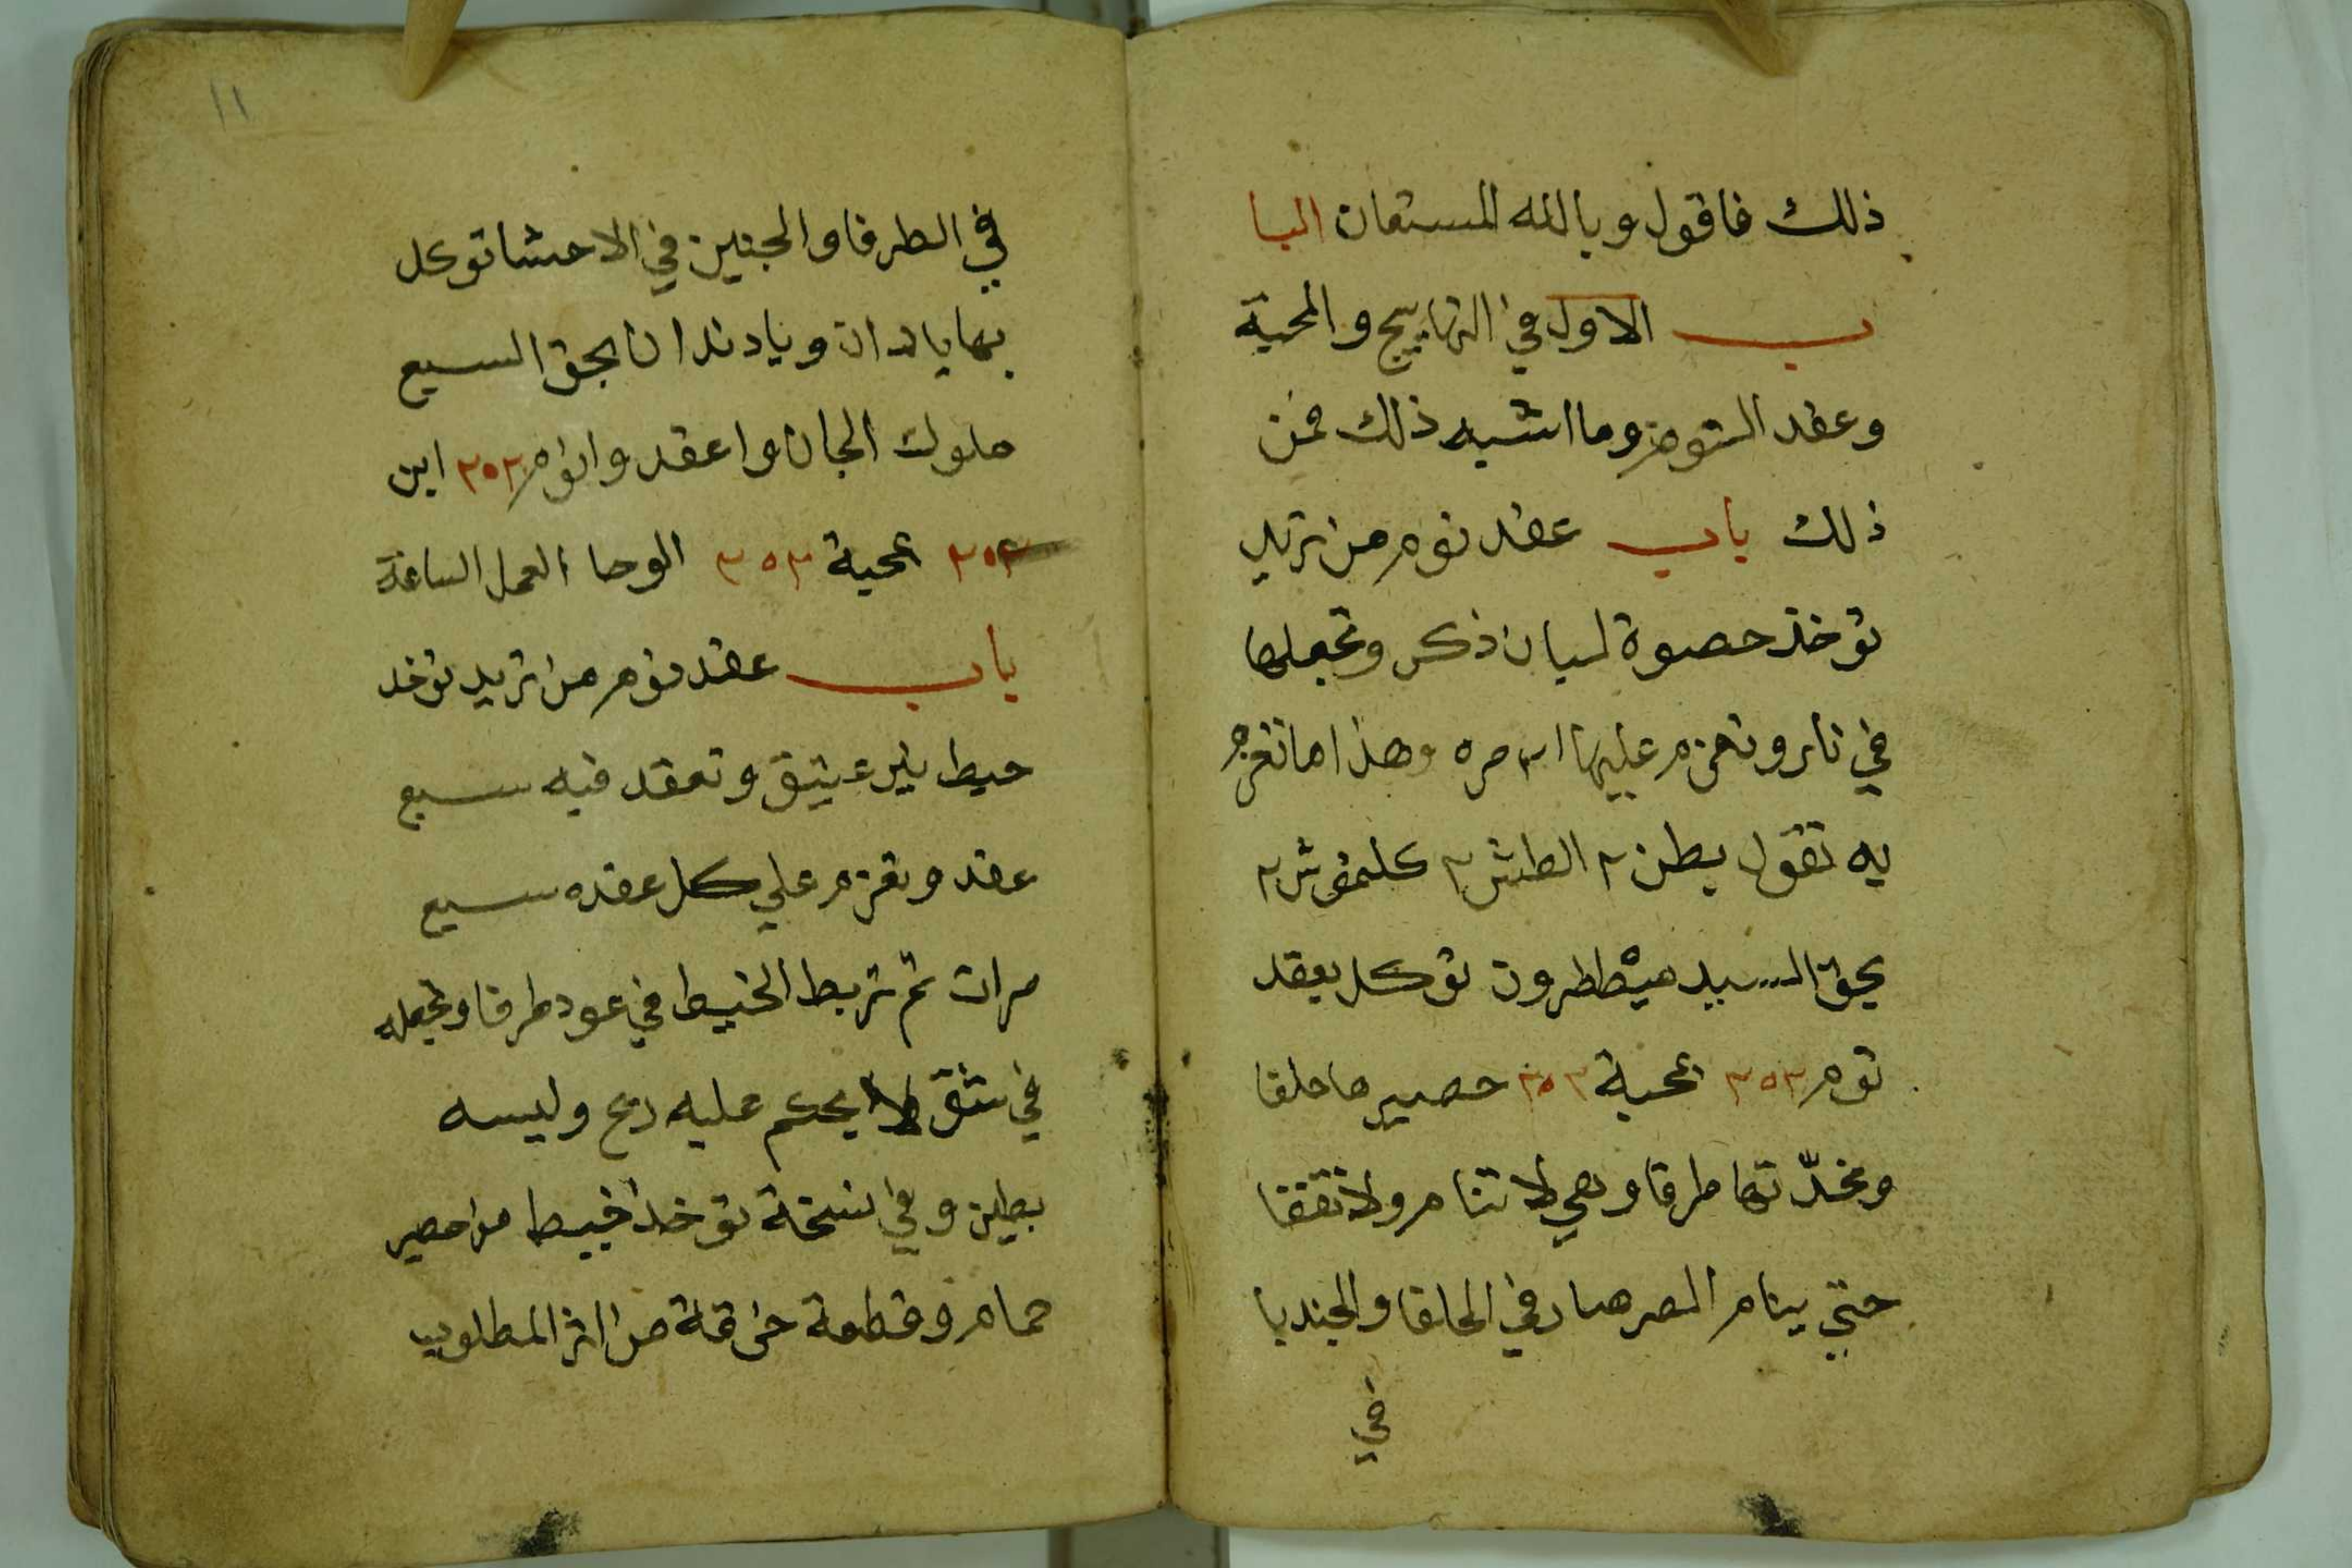 ذلك فاقول وبالله المستعان البا
ب الاول في التهاييج والمحبة
وعقد النوم وما اشبه ذلك فمن
ذلك باب عقد نوم من تريد
توخذ حصوة لبان ذكر وتجعلها
في نار وتعزم عليها مره وهذا ما تعزم
به تقول بطن ٢ الطش ٢ كلمفوش ٢
بحق السيد ميططرون توكل بعقد
نوم ٣٥٣ بمحبة ٣٥٣ حصير ما حلفا
ومخدتها طرفا وهي لا تنام ولا تغفا
حتي ينام الصرصار في الحلفا والجندبا
في
١١
في الطرفا والجنين في الاحشا توكل
بها يا دان ويا دندان بحق السبع
ملوك الجان واعقد وانوم ٣٥٣ ابن
٣٥٣ بمحبة ٣٥٣ الوحا العجل الساعة
باب عقد نوم من تريد توخد
خيط بير عتيق وتعقد فيه سبع
عقد وتعزم علي كل عقده سبع
مرات ثم تربط الخيط في عود طرفا وتجعله
في شق لا يحكم عليه ريح وليسه
بطين وفي نسخة توخذ خيط من حصير
حمام وقطعة خرقة من اثر المطلوب